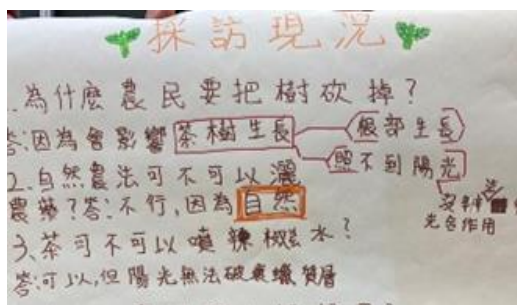 採訪現況
1.為什麼農民要把樹砍掉?
答:因為會影響茶樹生長 根部生長
照不到陽光
2.自然農法可不可以灑
農藥?答:不行,因為自然
沒辦法
光合作用
3、茶可不可以噴辣椒水?
答:可以,但陽光無法破壞蠟質層